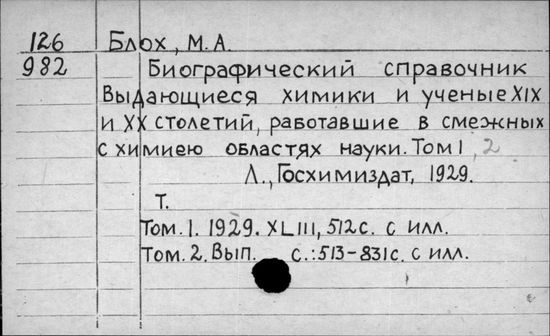 126 Блох, М.А.
982 Биографический справочник
Выдающиеся химики и ученые XIX
и XX столетий, работавшие в смежных
с химиею областях науки. Том 1, 2
Л., Госхимиздат, 1929.
Т.
Том. 1. 1929. XLIII, 512с. с илл.
Том. 2. Вып. с.: 513-831с. с илл.